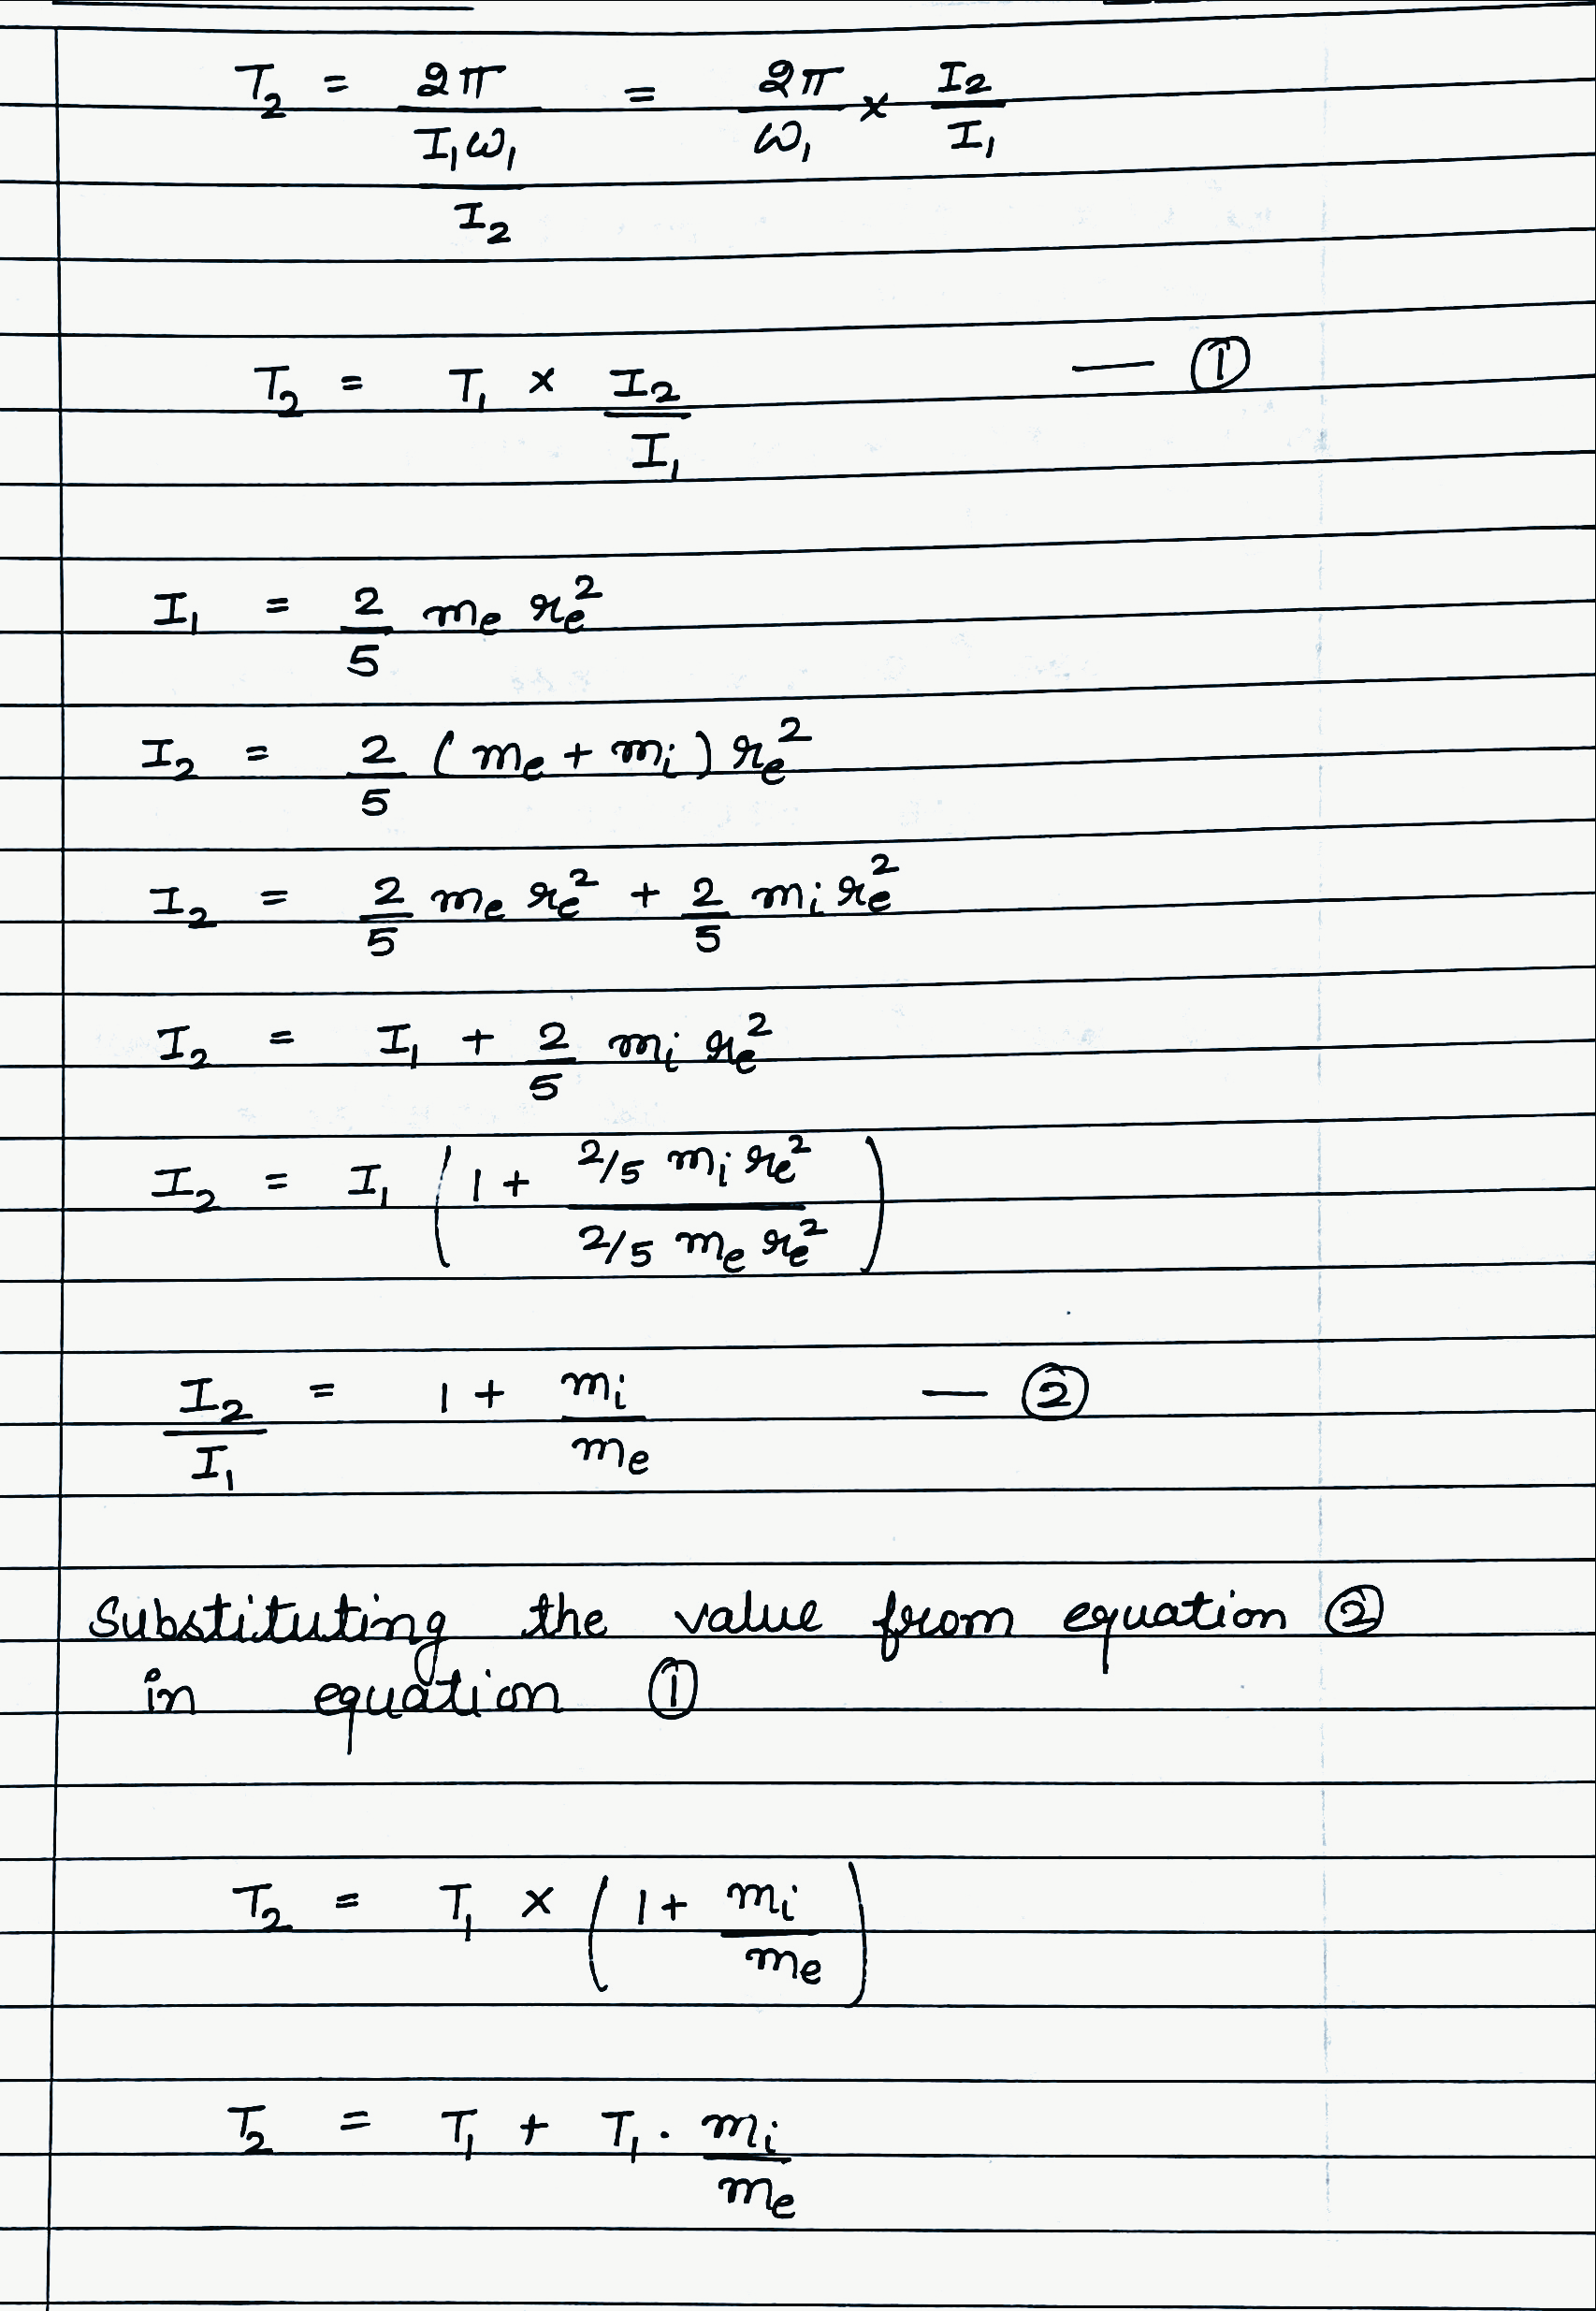 T₂ = 2π / (I₁ω₁ / I₂) = 2π/ω₁ × I₂/I₁
T₂ = T₁ × I₂/I₁ — ①
I₁ = 2/5 mₑ rₑ²
I₂ = 2/5 (mₑ + mᵢ) rₑ²
I₂ = 2/5 mₑ rₑ² + 2/5 mᵢ rₑ²
I₂ = I₁ + 2/5 mᵢ rₑ²
I₂ = I₁ (1 + 2/5 mᵢ rₑ² / 2/5 mₑ rₑ²)
I₂/I₁ = 1 + mᵢ/mₑ — ②
Substituting the value from equation ②
in equation ①
T₂ = T₁ × (1 + mᵢ/mₑ)
T₂ = T₁ + T₁ . mᵢ/mₑ